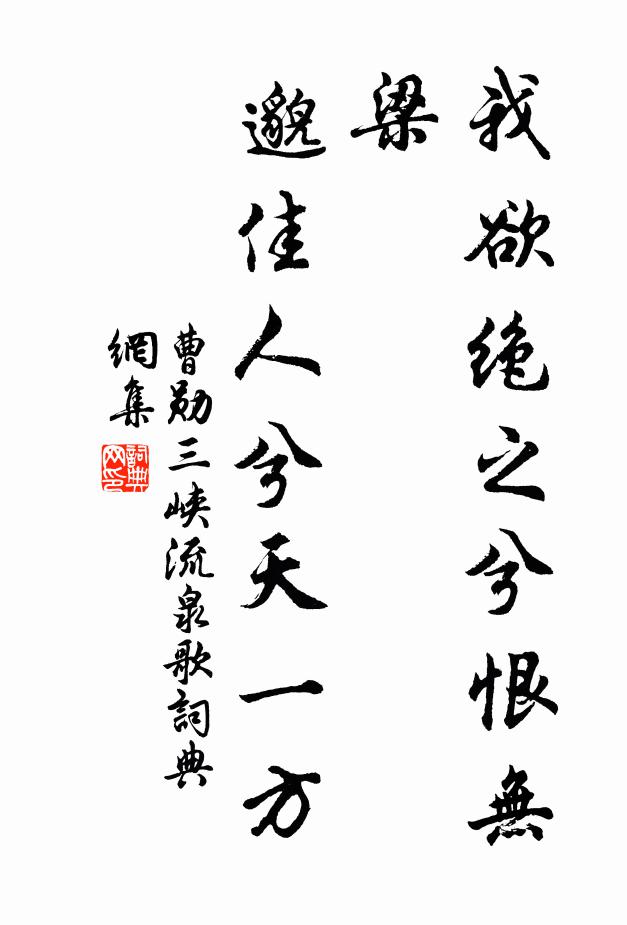 我欲绝之兮恨無
梁
邈佳人兮天一方
曹勛三峡流泉歌詞典
網集
詞典
网印